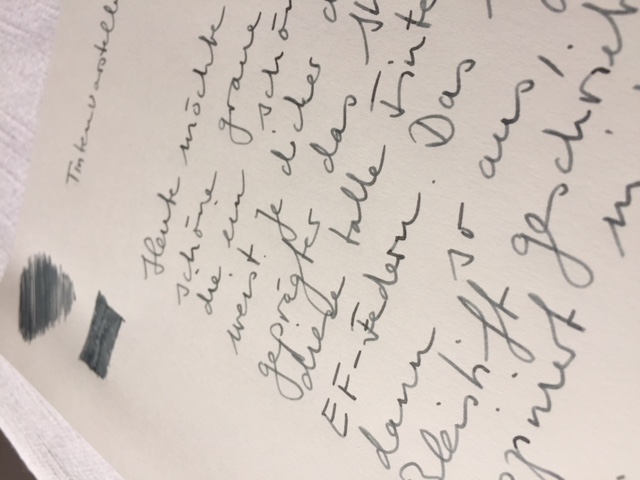 Tintenvorstell
Heute möchte
schöne graue
die ein schön
weist. Je dicker d
geprägter das
diese tolle Tinte
EF-Federn. Das
dann so aus,
Bleistift geschrieb